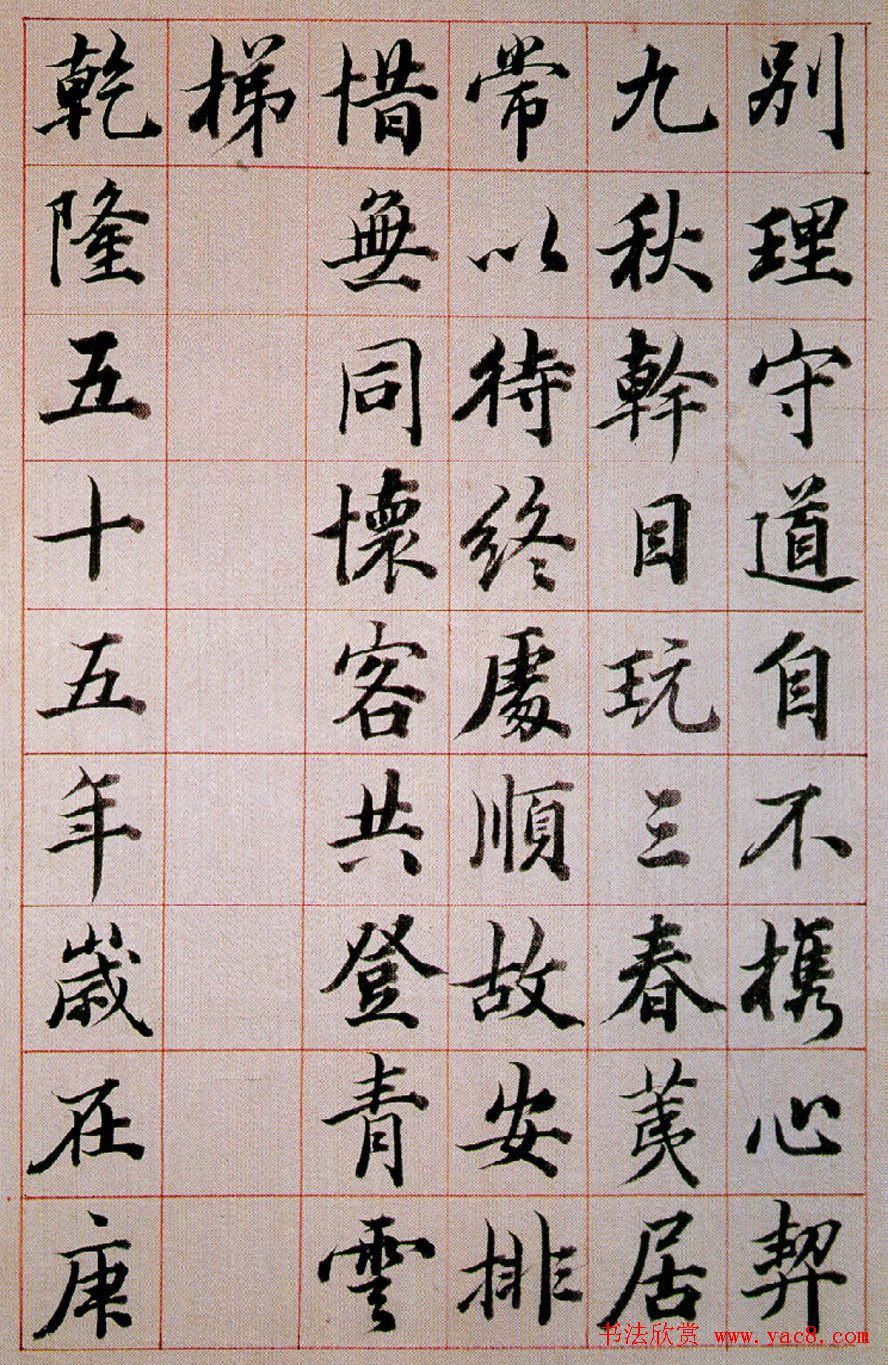 别理守道自不携心契
九秋幹目玩三春荑居
常以待終處順故安排
惜無同懷客共登青雲
梯
乾隆五十五年歲在庚
书法欣赏 www.yac8.com